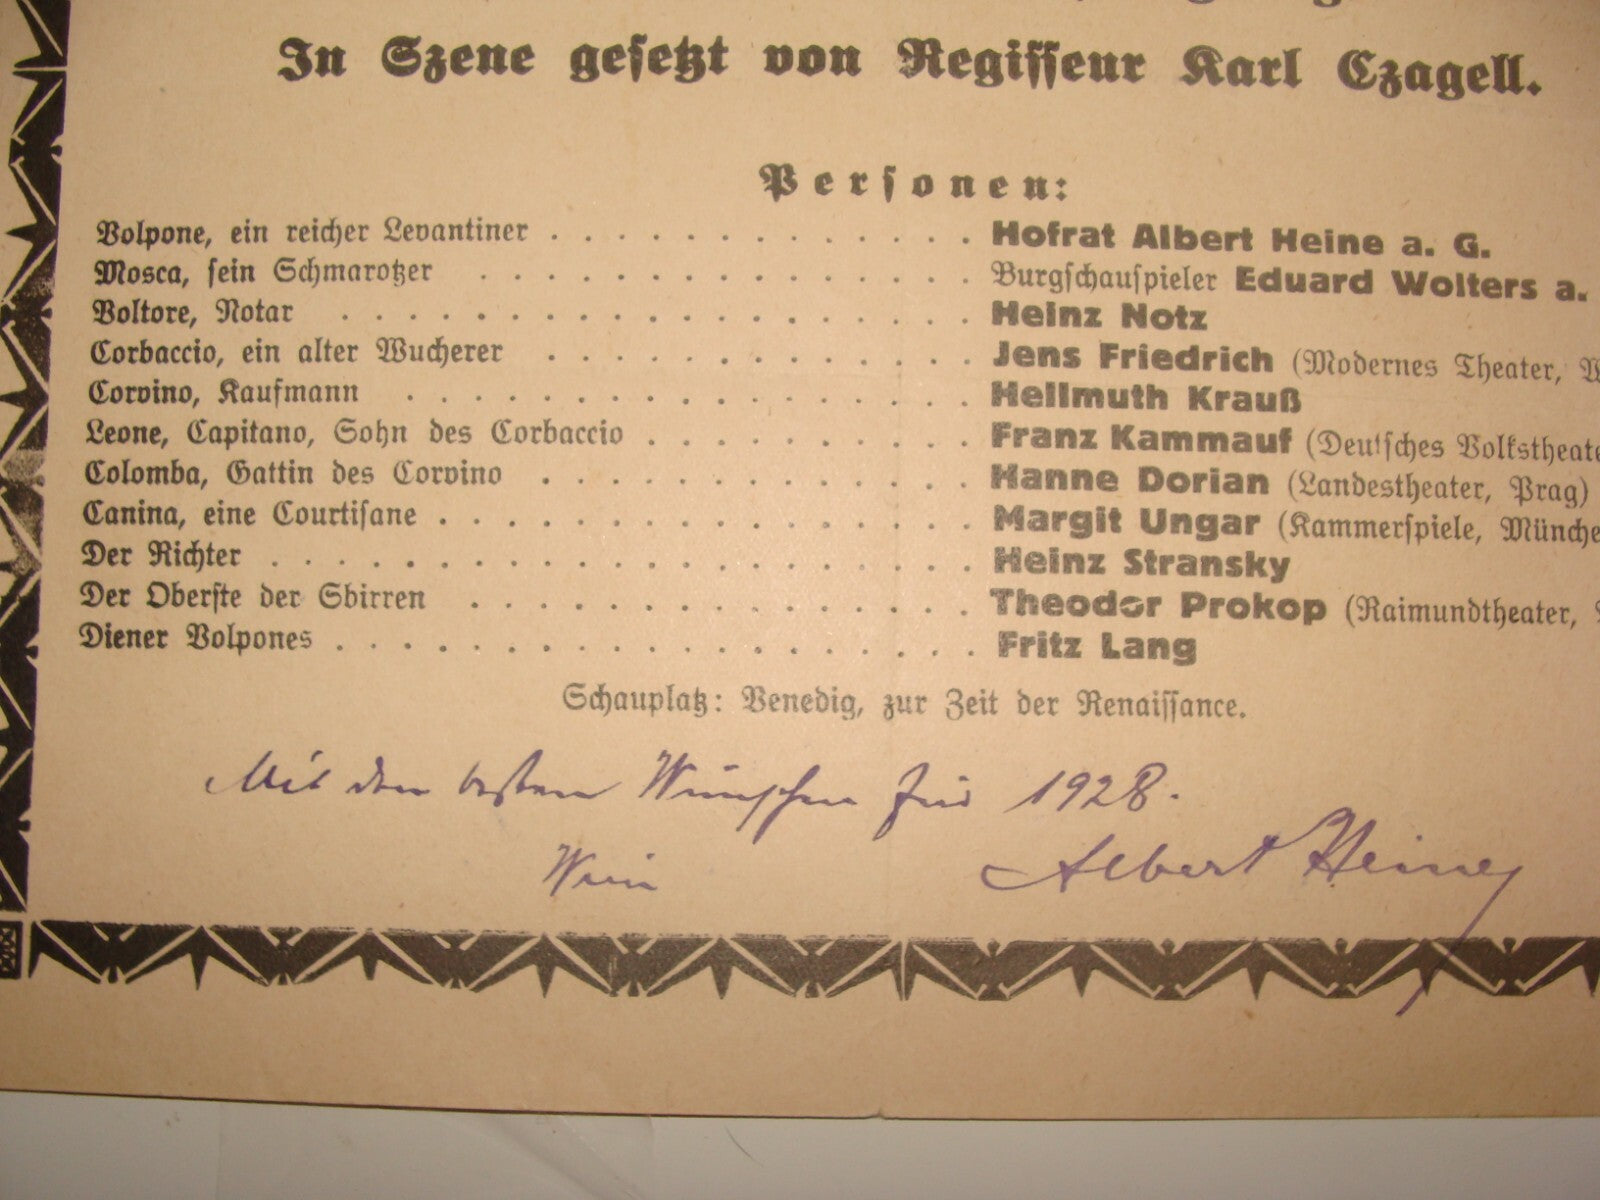 In Szene gesetzt von Regisseur Karl Czagell.
Personen:
Volpone, ein reicher Levantiner . . . . . . . . . . . . . . . . Hofrat Albert Heine a. G.
Mosca, sein Schmarotzer . . . . . . . . . . . . . . . . . . . Burgschauspieler Eduard Wolters a.
Voltore, Notar . . . . . . . . . . . . . . . . . . . . . . . . Heinz Notz
Corbaccio, ein alter Wucherer . . . . . . . . . . . . . . . . Jens Friedrich (Modernes Theater,
Corvino, Kaufmann . . . . . . . . . . . . . . . . . . . . . . Hellmuth Krauß
Leone, Capitano, Sohn des Corbaccio . . . . . . . . . . . . . Franz Kammauf (Deutsches Volkstheate
Colomba, Gattin des Corvino . . . . . . . . . . . . . . . . . Hanne Dorian (Landestheater, Prag)
Canina, eine Courtisane . . . . . . . . . . . . . . . . . . . Margit Ungar (Kammerspiele, Münche
Der Richter . . . . . . . . . . . . . . . . . . . . . . . . . . Heinz Stransky
Der Oberste der Sbirren . . . . . . . . . . . . . . . . . . . Theodor Prokop (Raimundtheater,
Diener Volpones . . . . . . . . . . . . . . . . . . . . . . . . Fritz Lang
Schauplatz: Venedig, zur Zeit der Renaissance.
Mit den besten Wünschen für 1928.
Wien Albert Heine